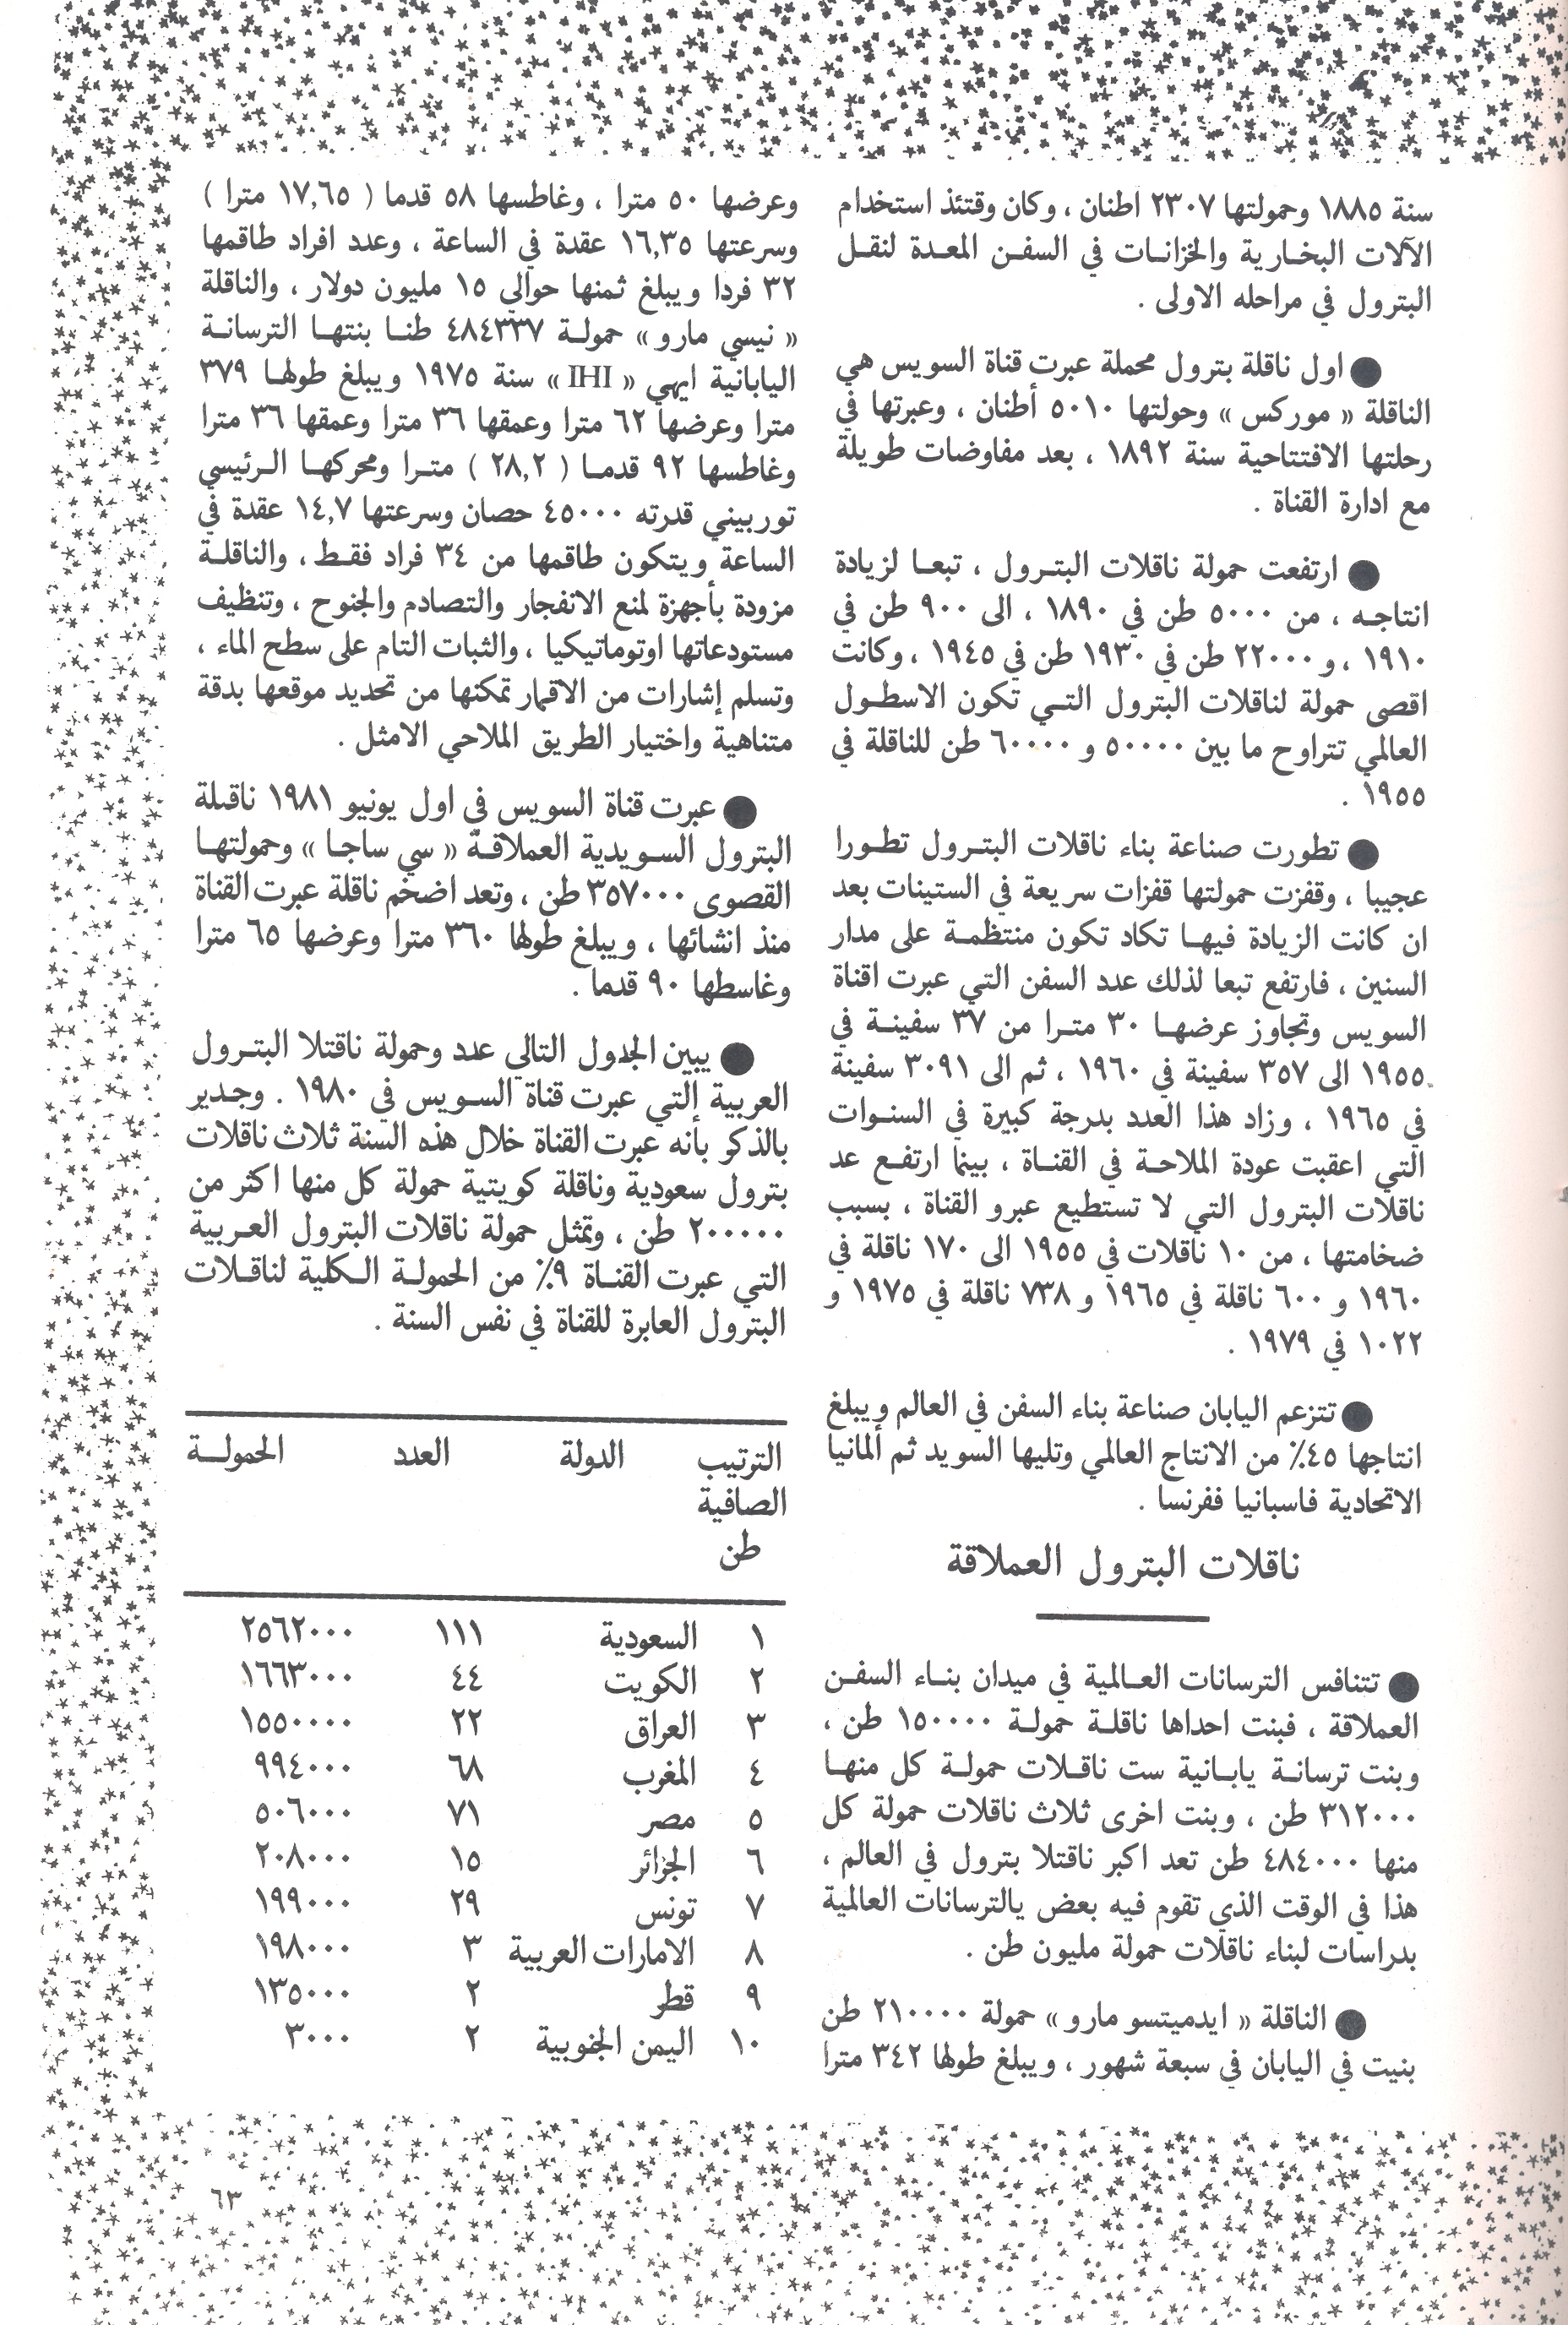 سنة ١٨٨٥ وحمولتها ٢٣٠٧ اطنان ، وكان وقتئذ استخدام
الآلات البخارية والخزانات في السفن المعدة لنقل
البترول في مراحله الاولى .
● اول ناقلة بترول محملة عبرت قناة السويس هي
الناقلة « موركس » وحولتها ٥٠١٠ أطنان ، وعبرتها في
رحلتها الافتتاحية سنة ١٨٩٢ ، بعد مفاوضات طويلة
مع ادارة القناة .
● ارتفعت حمولة ناقلات البترول ، تبعا لزيادة
انتاجه ، من ٥٠٠٠ طن في ١٨٩٠ ، الى ٩٠٠ طن في
١٩١٠ ، و ٢٢٠٠٠ طن في ١٩٣٠ طن في ١٩٤٥ ، وكانت
اقصى حمولة لناقلات البترول التي تكون الاسطول
العالمي تتراوح ما بين ٥٠٠٠٠ و ٦٠٠٠٠ طن للناقلة في
١٩٥٥ .
● تطورت صناعة بناء ناقلات البترول تطورا
عجيبا ، وقفزت حمولتها قفزات سريعة في الستينات بعد
ان كانت الزيادة فيها تكاد تكون منتظمة على مدار
السنين ، فارتفع تبعا لذلك عدد السفن التي عبرت اقناة
السويس وتجاوز عرضها ٣٠ مترا من ٣٧ سفينة في
١٩٥٥ الى ٣٥٧ سفينة في ١٩٦٠ ، ثم الى ٣٠٩١ سفينة
في ١٩٦٥ ، وزاد هذا العدد بدرجة كبيرة في السنوات
التي اعقبت عودة الملاحة في القناة ، بينما ارتفع عد
ناقلات البترول التي لا تستطيع عبرو القناة ، بسبب
ضخامتها ، من ١٠ ناقلات في ١٩٥٥ الى ١٧٠ ناقلة في
١٩٦٠ و ٦٠٠ ناقلة في ١٩٦٥ و ٧٣٨ ناقلة في ١٩٧٥ و
١٠٢٢ في ١٩٧٩ .
● تتزعم اليابان صناعة بناء السفن في العالم ويبلغ
انتاجها ٤٥٪ من الانتاج العالمي وتليها السويد ثم ألمانيا
الاتحادية فاسبانيا ففرنسا .
ناقلات البترول العملاقة
● تتنافس الترسانات العالمية في ميدان بناء السفن
العملاقة ، فبنت احداها ناقلة حمولة ١٥٠٠٠٠ طن ،
وبنت ترسانة يابانية ست ناقلات حمولة كل منها
٣١٢٠٠٠ طن ، وبنت اخرى ثلاث ناقلات حمولة كل
منها ٤٨٤٠٠٠ طن تعد اكبر ناقتلا بترول في العالم ،
هذا في الوقت الذي تقوم فيه بعض يالترسانات العالمية
بدراسات لبناء ناقلات حمولة مليون طن .
● الناقلة « ايدميتسو مارو » حمولة ٢١٠٠٠٠ طن
بنيت في اليابان في سبعة شهور ، ويبلغ طولها ٣٤٢ مترا
وعرضها ٥٠ مترا ، وغاطسها ٥٨ قدما ( ١٧,٦٥ مترا )
وسرعتها ١٦,٣٥ عقدة في الساعة ، وعدد افراد طاقمها
٣٢ فردا ويبلغ ثمنها حوالي ١٥ مليون دولار ، والناقلة
« نيسي مارو » حمولة ٤٨٤٣٣٧ طنا بنتها الترسانة
اليابانية ايهي « IHI » سنة ١٩٧٥ ويبلغ طولها ٣٧٩
مترا وعرضها ٦٢ مترا وعمقها ٣٦ مترا وعمقها ٣٦ مترا
وغاطسها ٩٢ قدما ( ٢٨,٢ ) مترا ومحركها الرئيسي
توربيني قدرته ٤٥٠٠٠ حصان وسرعتها ١٤,٧ عقدة في
الساعة ويتكون طاقمها من ٣٤ فراد فقط ، والناقلة
مزودة بأجهزة لمنع الانفجار والتصادم والجنوح ، وتنظيف
مستودعاتها اوتوماتيكيا ، والثبات التام على سطح الماء ،
وتسلم إشارات من الاقمار تمكنها من تحديد موقعها بدقة
متناهية واختيار الطريق الملاحي الامثل .
● عبرت قناة السويس في اول يونيو ١٩٨١ ناقلة
البترول السويدية العملاقة « سي ساجا » وحمولتها
القصوى ٣٥٧٠٠٠ طن ، وتعد اضخم ناقلة عبرت القناة
منذ انشائها ، ويبلغ طولها ٣٦٠ مترا وعرضها ٦٥ مترا
وغاسطها ٩٠ قدما .
● يبين الجدول التالي عدد وحمولة ناقتلا البترول
العربية التي عبرت قناة السويس في ١٩٨٠ . وجدير
بالذكر بأنه عبرت القناة خلال هذه السنة ثلاث ناقلات
بترول سعودية وناقلة كويتية حمولة كل منها اكثر من
٢٠٠٠٠٠ طن ، وتمثل حمولة ناقلات البترول العربية
التي عبرت القناة ٩٪ من الحمولة الكلية لناقلات
البترول العابرة للقناة في نفس السنة .
الترتيب الدولة العدد الحمولة
الصافية
طن
١ السعودية ١١١ ٢٥٦٢٠٠٠
٢ الكويت ٤٤ ١٦٦٣٠٠٠
٣ العراق ٢٢ ١٥٥٠٠٠٠
٤ المغرب ٦٨ ٩٩٤٠٠٠
٥ مصر ٧١ ٥٠٦٠٠٠
٦ الجزائر ١٥ ٢٠٨٠٠٠
٧ تونس ٢٩ ١٩٩٠٠٠
٨ الامارات العربية ٣ ١٩٨٠٠٠
٩ قطر ٢ ١٣٥٠٠٠
١٠ اليمن الجنوبية ٢ ٣٠٠٠
٦٣